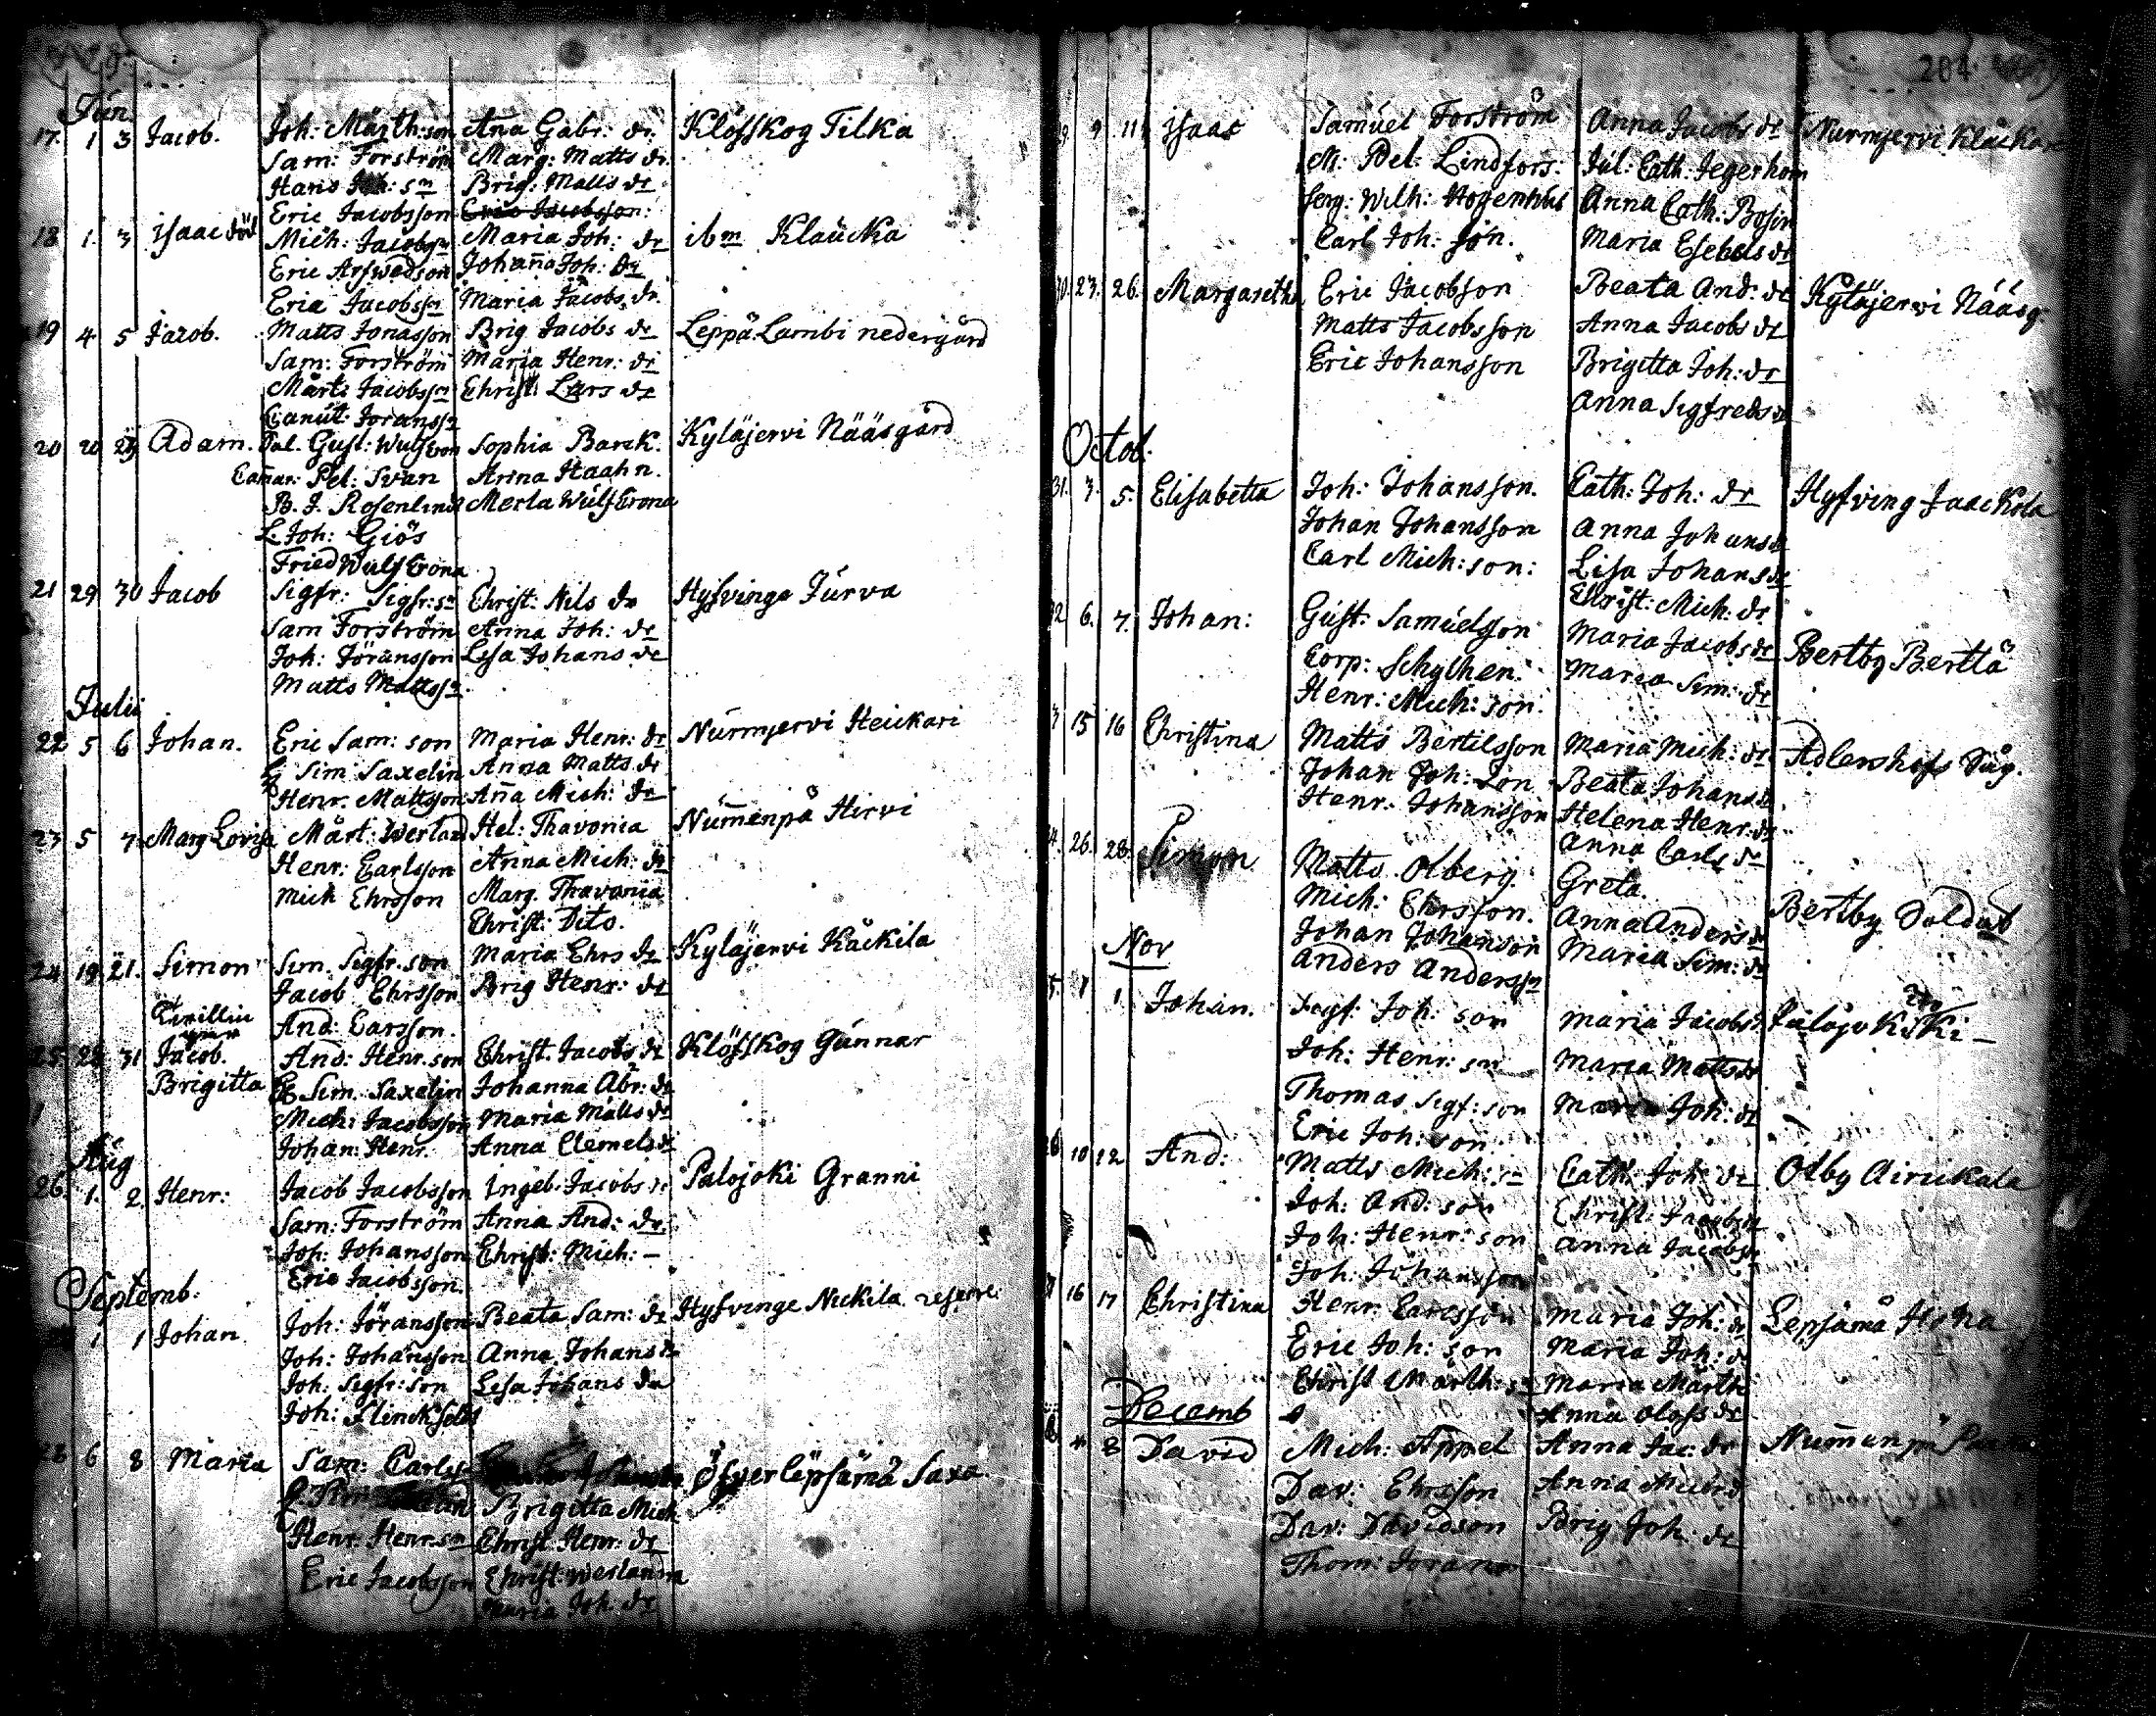 Jun.
17. 1 3 Jacob. Joh: Märth:son Aña Gabr: dr. Klöfskog Tilka
Sam: Forström Marg: Matts dr.
Hans Joh: sn Brig: Matts dr
Eric Jacobsson Eric Jacobsson:
18 1. 3 isaac död Mich: Jacobssn Maria Joh: dr ibm Klaucka
Eric Arfwedson Johaña Joh: dr
Eric Jacobssn Maria Jacobs dr
19 4 5 Jacob. Matts Jonasson Brig Jacobs dr Leppä Lambi nedergård
Sam: Forström Maria Henr: dr
Märt: Jacobssn Christ: Lars dr
Canut: Joranssn
20 20 29 Adam. Gust: Wulfcrona Sophia Barck. Kyläjervi Nääsgård
Camar: Pet: Svan Anna Haahn.
B. J. Rosenlind Merta Wulfcrona
L. Joh: Giös
Fried Wulfcrona
21 29 30 Jacob Sigfr: Sigfr:sn Christ: Nils dr Hyfvinge Jurva
Sam Forström Anna Joh: dr
Joh: Jöransson Lisa Johans dr
Matts Mattssn.
Julii
22 5 6 Johan. Eric Sam: son Maria Henr: dr Nurmjervi Heickari
Sim Saxelin Anna Matts dr
Henr. Mattsson Aña Mich: dr
23 5 7 Marg Lovisa Märt: Werland Hel: Thavonia Num̄enpä Hirvi
Henr: Carlsson Anna Mich: dr
Mich Ehrsson Marg. Thavonia
Christ: Dito.
24 19 21. Simon Sim. Sigfr. son Maria Ehrs dr Kyläjervi Käckila
Jacob Ehrsson Brig Henr: dr
Tvillin And: Carsson.
25 28 31 Jacob. And: Henr. son Christ. Jacobs dr Klöfskog Gunnar
Brigitta Sim. Saxelin Johanna Abr: dr
Mich: Jacobsson Maria Matts dr
Johan: Henr. Anna Clemets dr
Aug
26. 1. 2. Henr: Jacob Jacobsson Ingeb: Jacobs dr Palojoki Granni
Sam: Forström Anna And: dr.
Joh: Johansson Christ: Mich: —
Eric Jacobsson
Septemb.
1 1 Johan. Joh: Jöransson Beata Sam: dr Hyfvinge Nickila reserve
Joh: Johansson Anna Johans dr
Joh: Sigfr: son Lisa Johans dr
Joh: Flinck
28 6 8 Maria Sam: Carls Öfverlepsämä Saxa.
Brigitta Mich
Henr. Henr. sn Christ Henr: dr
Eric Jacobsson Christ: Weslandra
Maria Joh: dr
204
29 9 11 isaac Samuel Forström Anna Jacobs dr Nurmjervi Klåckar
M: Pet: Lindfors. Jul: Cath: Jegerhorn
Serg: Wilh: Hogenhus Anna Cath: Bosin
Carl Joh: son. Maria Esebels dr
30 23. 26. Margaretha Eric Jacobson Beata And: dr Kyläjervi Nääsg.
Matts Jacobsson Anna Jacobs dr
Eric Johansson Brigitta Joh: dr
Anna Sigfreds dr
Octob.
31. 3. 5. Elisabetta Joh: Johansson. Cath: Joh: dr Hyfving Jaackola
Johan Johansson Anna Johans dr
Carl Mich: son: Lisa Johans dr
Christ: Mich: dr
32 6. 7. Johan: Gust: Samuelsson Maria Jacobs dr Bertby Berttä
Corp: Schythen: Maria Sim: dr
Henr: Mich: son.
3 15 16 Christina Matts Bertilsson Maria Mich: dr Adlershofs
Johan Joh: son Beata Johans dr
Henr. Johansson Helena Henr. dr
Anna Carls dr
4. 26. 28. Simon Matts Olberg. Greta. Bertby Soldat
Mich: Ehrsson. Anna Anders dr
Johan Johanson Maria Sim: dr
Anders Anderssn
Nov
5. 1 1. Johan. Sigf: Joh: son Maria Jacobs
Joh: Henr: son Maria Matts dr
Thomas Sigf: son Maria Joh: dr
Eric Joh: son.
36 10 12 And: Matts Mich: sn Cath: Joh: dr Olby Airickala
Joh: And: son Christ: Jacobs dr
Joh: Henr: son Anna Jacobs dr
Joh: Johansson
37 16 17 Christina Henr: Carlsson Maria Joh: dr Lepsämä
Eric Joh: son Maria Joh: dr
Christ Märth: sn Maria Märth
Anna Olofs dr
Decemb
8 David Mich: Appel Anna Jac: dr
Dav: Ehrsson Anna
Dav: Davidson Brig Joh: dr
Thom: Joranson